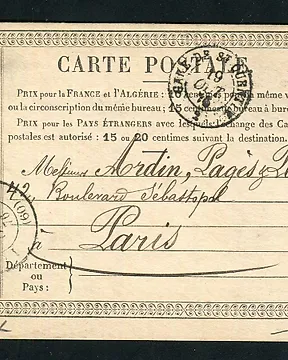 CARTE POSTALE
PRIX pour la FRANCE et l'ALGÉRIE : centimes pour la même v
ou la circonscription du même bureau ; 15 centimes de bureau à bure
PRIX pour les PAYS ÉTRANGERS avec lesquels l'échange des Ca
postales est autorisé : 15 ou 20 centimes suivant la destination.
Messieurs Ardin, Pagès &
42, Boulevard Sébastopol
à Paris
Département
ou
Pays :